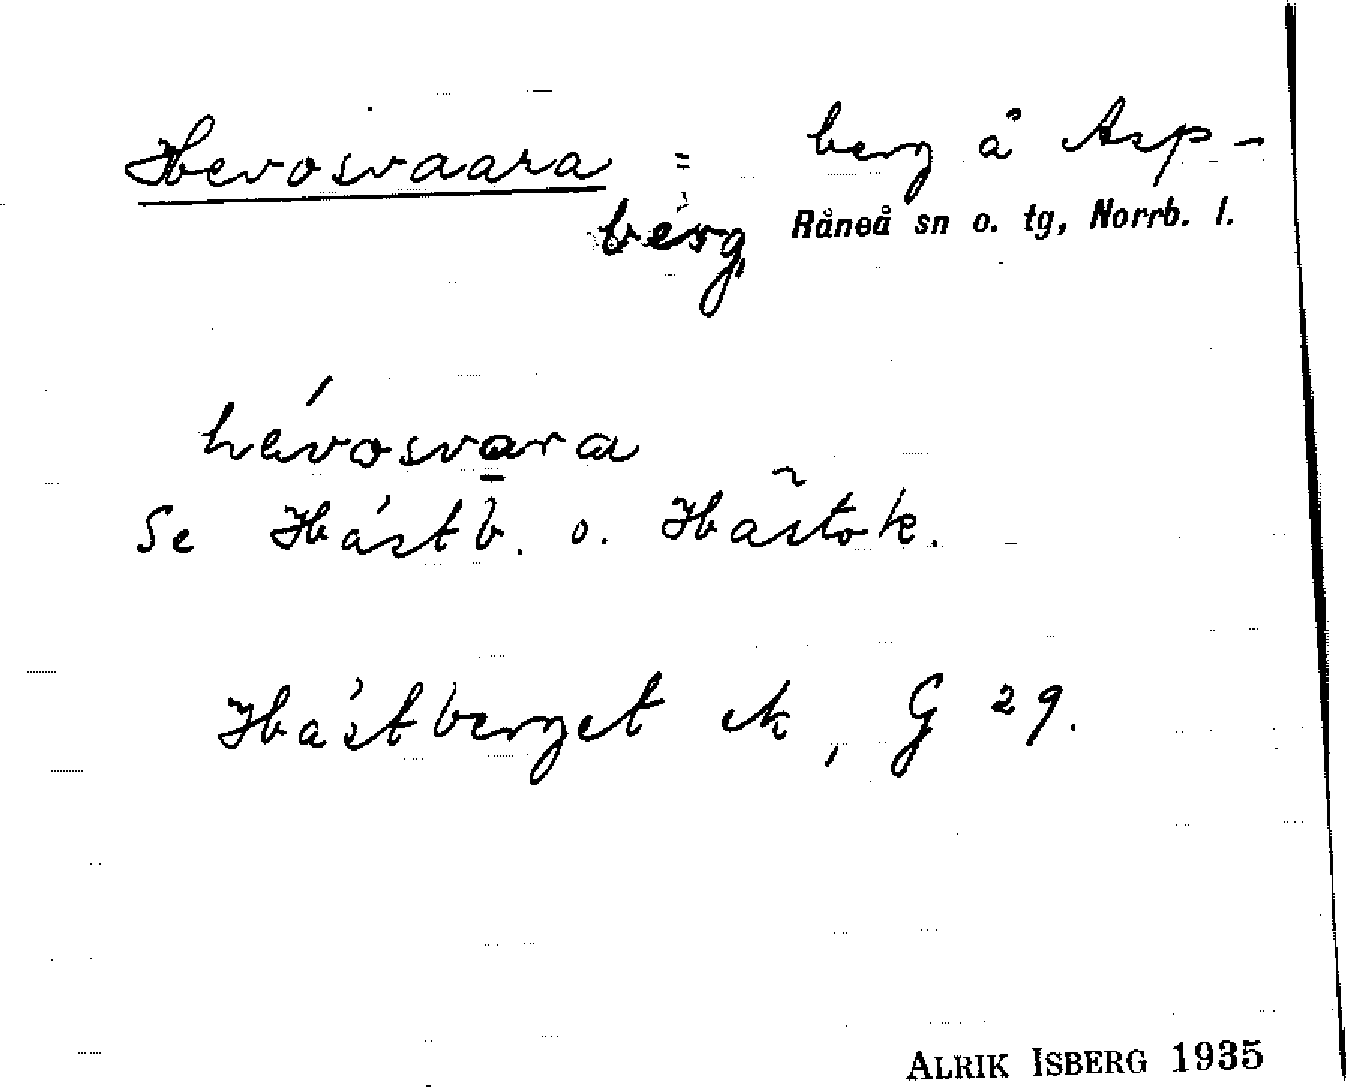 Hevosvaara = berg å Asp-
berg, Råneå sn o. tg, Norrb. l.
hévosvara
Se Hästb. o. Hästok.
Hästberget ek, G 29.
ALRIK ISBERG 1935